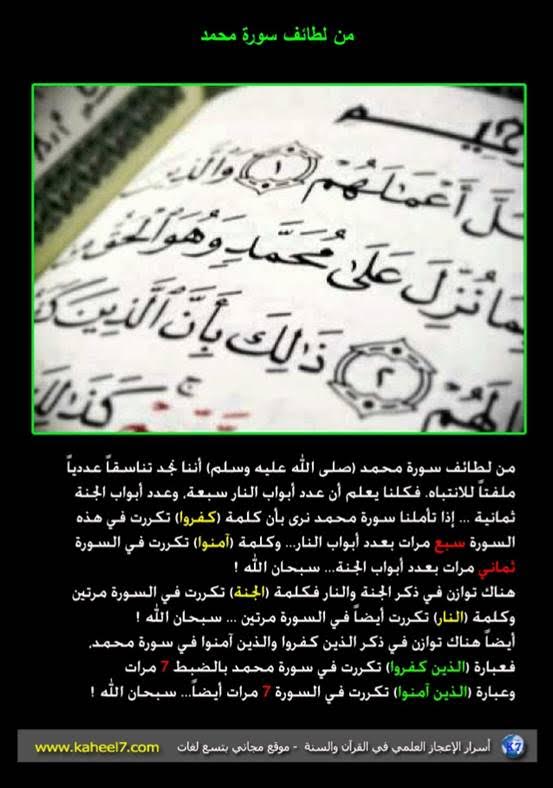 من لطائف سورة محمد
ـيم
ـلَّ أَعْمَـٰلَهُمْ ١ وَالَّذِيـ
بِمَا نُزِّلَ عَلَىٰ مُحَمَّدٍ وَهُوَ الْحَقُّ
ـالَهُمْ ٢ ذَٰلِكَ بِأَنَّ الَّذِينَ كَفَـ
كَذَٰلِكَ
من لطائف سورة محمد (صلى الله عليه وسلم) أننا نجد تناسقاً عددياً
ملفتاً للانتباه. فكلنا يعلم أن عدد أبواب النار سبعة، وعدد أبواب الجنة
ثمانية ... إذا تأملنا سورة محمد نرى بأن كلمة (كفروا) تكررت في هذه
السورة سبع مرات بعدد أبواب النار... وكلمة (آمنوا) تكررت في السورة
ثماني مرات بعدد أبواب الجنة... سبحان الله !
هناك توازن في ذكر الجنة والنار فكلمة (الجنة) تكررت في السورة مرتين
وكلمة (النار) تكررت أيضاً في السورة مرتين ... سبحان الله !
أيضاً هناك توازن في ذكر الذين كفروا والذين آمنوا في سورة محمد.
فعبارة (الذين كفروا) تكررت في سورة محمد بالضبط 7 مرات
وعبارة (الذين آمنوا) تكررت في السورة 7 مرات أيضاً... سبحان الله !
أسرار الإعجاز العلمي في القرآن والسنة - موقع مجاني بتسع لغات www.kaheel7.com